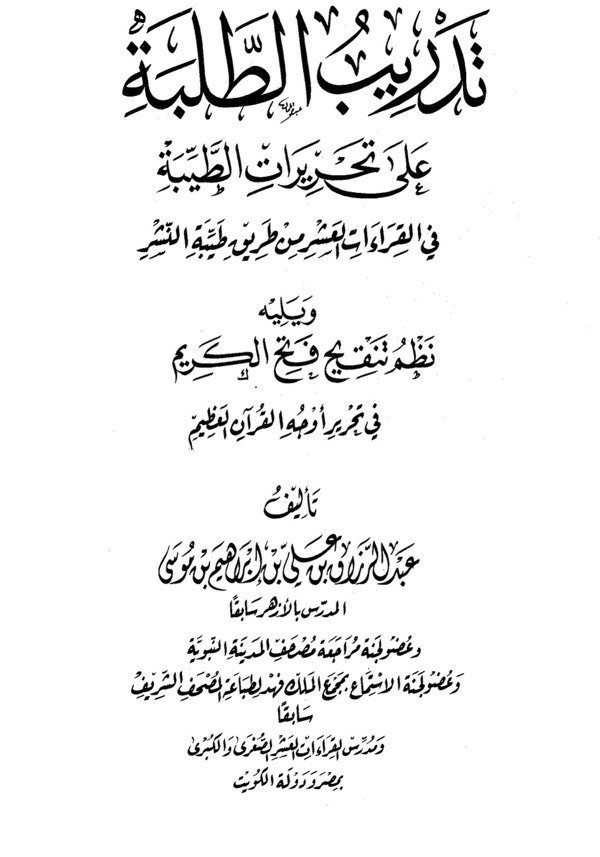 تَدْرِيبُ الطَّلَبَةِ
عَلَى تَحْرِيرَاتِ الطَّيِّبَةِ
فِي القِرَاءَاتِ العَشْرِ مِنْ طَرِيقِ طَيِّبَةِ النَّشْرِ
وَيَلِيْه
نَظْمُ تَنْقِيحِ فَتْحِ الكَرِيمِ
فِي تَحْرِيرِ أَوْجُهِ القُرْآنِ العَظِيمِ
تَأْلِيفُ
عَبْدِ الرَّزَّاقِ بْنِ عَلِيِّ بْنِ إِبْرَاهِيمَ بْنِ مُوسَى
المدَرّس بالأزهر سَابقًا
وعُضو لجنَة مُرَاجعَة مُصحَف المَدينَة النّبَويَّة
وَعُضو لجنَة الاسْتماع بمجَمع الملك فهد لطبَاعَة المُصْحَف الشريف
سَابقًا
ومُدرّس القِراءَات العَشر الصُّغرَى وَالكُبرَى
بمِصر وَدَولة الكوَيت